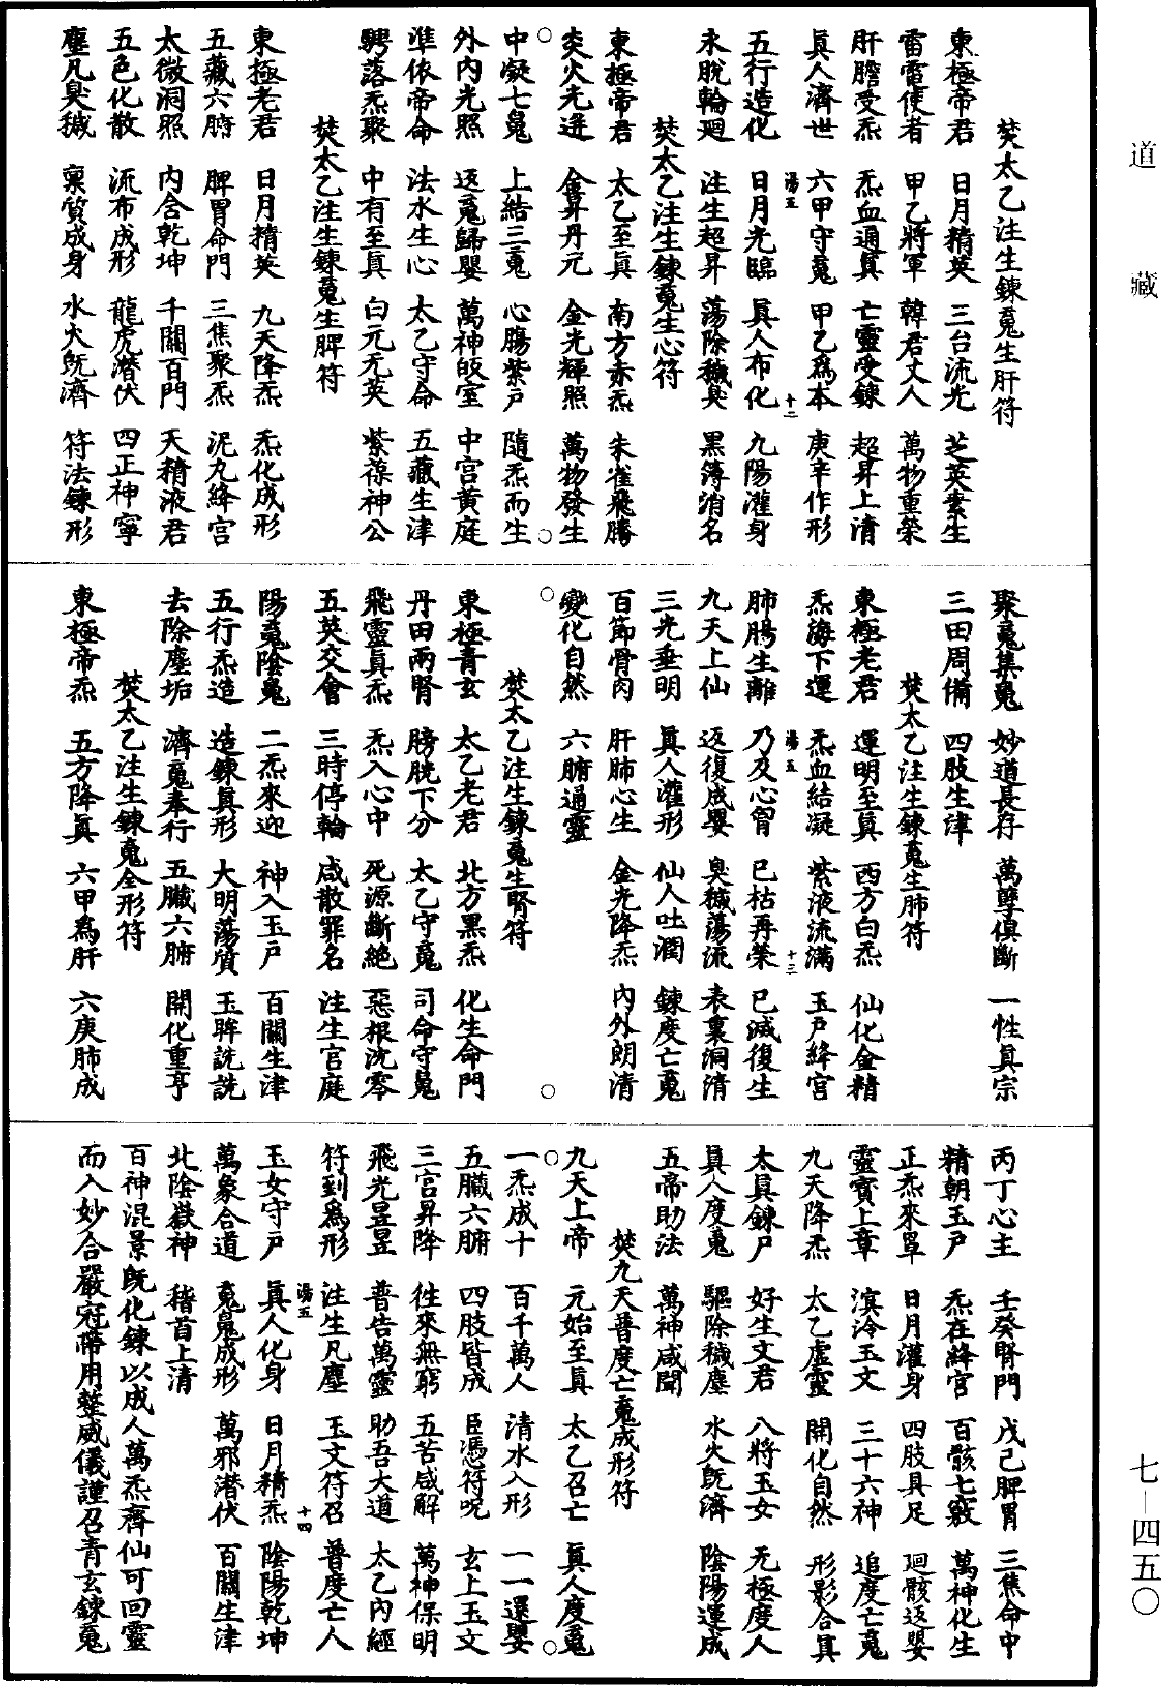 道藏
焚太乙注生鍊䰟生肝符
東極帝君 日月精英 三台流光 芝英素生
雷霆使者 甲乙將軍 韓君丈人 萬物重榮
肝膽受炁 炁血通真 亡靈受鍊 超昇上清
真人濟世 六甲守䰟 甲乙為本 庚辛作形
湯五 十二
五行造化 日月光臨 真人布化 九陽灌身
永脫輪廻 注生超昇 蕩除穢臭 黑簿消名
焚太乙注生鍊䰟生心符
東極帝君 太乙至真 南方赤炁 朱雀飛騰
炎火光逬 會昇丹元 金光輝照 萬物發生
中凝七䰟 上結三䰟 心腸紫戶 隨炁而生
外內光照 返䰟歸嬰 萬神皎室 中宮黃庭
準依帝命 法水生心 太乙守命 五藏生津
騁落炁聚 中有至真 白元无英 紫葆神公
焚太乙注生鍊䰟生脾符
東極老君 日月精英 九天降炁 炁化成形
五藏六腑 脾胃命門 三焦聚炁 泥丸絳宮
太微洞照 內含乾坤 千關百門 天精液君
五色化散 流布成形 龍虎潛伏 四正神寧
塵凡臭穢 稟質成身 水火既濟 符法鍊形
聚䰟集䰟 妙道長存 萬孽俱斷 一性真宗
三田周備 四肢生津
焚太乙注生鍊䰟生肺符
東極老君 運明至真 西方白炁 仙化金精
炁海下運 炁血結凝 紫液流滿 玉戶絳宮
湯五 十三
肺腸生離 乃及心胷 已枯再榮 已滅復生
九天上仙 返復成嬰 臭穢蕩流 表裏洞清
三光垂明 真人灌形 仙人吐潤 鍊度亡䰟
百節骨肉 肝肺心生 金光降炁 內外朗清
變化自然 六腑通靈
焚太乙注生鍊䰟生腎符
東極青玄 太乙老君 北方黑炁 化生命門
丹田兩腎 膀胱下分 太乙守䰟 司命守䰟
飛靈真炁 炁入心中 死源斷絕 惡根沈零
五英交會 三時停輪 咸散罪名 注生官庭
陽䰟陰䰟 二炁來迎 神入玉戶 百關生津
五行炁造 造鍊真形 大明蕩質 玉眸詵詵
去除塵垢 濟䰟奉行 五臟六腑 開化重亨
焚太乙注生鍊䰟全形符
東極帝炁 五方降真 六甲為肝 六庚肺成
丙丁心主 壬癸腎門 戊己脾胃 三焦命中
精朝玉戶 炁在絳宮 百骸七竅 萬神化生
正炁來罩 日月灌身 四肢具足 廻骸返嬰
靈寶上章 滇泠玉文 三十六神 追度亡䰟
九天降炁 太乙虛靈 開化自然 形影合真
太真鍊戶 好生文君 八將玉女 无極度人
真人度䰟 驅除穢塵 水火既濟 陰陽運成
五帝助法 萬神咸聞
焚九天普度亡䰟成形符
九天上帝 元始至真 太乙召亡 真人度䰟
一炁成十 百千萬人 清水入形 一一還嬰
五臟六腑 四肢皆成 臣憑符呪 玄上玉文
三宮昇降 徃來無窮 五苦咸解 萬神保明
飛光昱昱 普告萬靈 助吾大道 太乙內經
符到為形 注生凡塵 玉文符召 普度亡人
湯五 十四
玉女守戶 真人化身 日月精炁 陰陽乾坤
萬象合道 䰟䰟成形 萬邪潛伏 百關生津
北陰嶽神 稽首上清
百神混景既化鍊以成人萬炁齊仙可回靈
而入妙合嚴冠蔕用整威儀謹召青玄鍊䰟
七－四五〇